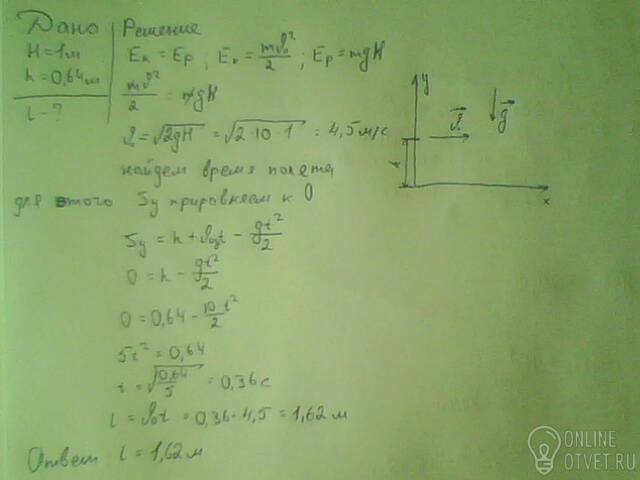 Дано
H = 1 м
h = 0,64 м
l - ?
Решение
Eк = Eр ; Eк = mϑ₀²/2 ; Eр = mgH
mϑ²/2 = mgH
ϑ = √2gH = √2·10·1 = 4,5 м/с
найдем время полета
для этого Sy приравняем к 0
Sy = h + ϑ₀yt - gt²/2
0 = h - gt²/2
0 = 0,64 - 10/2 t²
5t² = 0,64
t = √0,64/5 = 0,36 с
l = ϑ₀t = 0,36·4,5 = 1,62 м
Ответ l = 1,62 м
y
ϑ
g
x
ONLINE
OTVET.RU